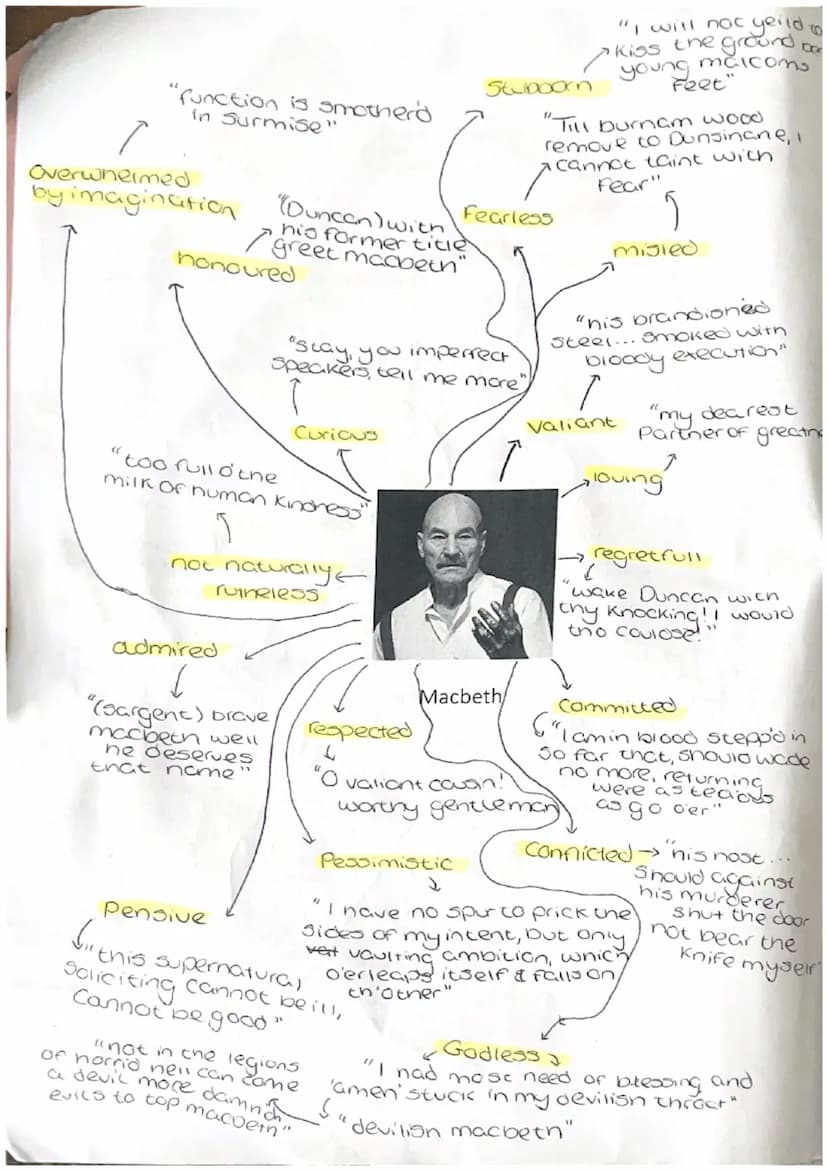 "I will not yeild to
Kiss the ground
young malcoms
Feet"
Stubborn
"function is smother'd
in surmise"
overwhelmed
by imagination
"Till burnam wood
remove to Dunsinane, I
cannot taint with
fear"
Fearless
misled
"(Duncan) with
his former title
greet macbeth"
honoured
"his brandished
steel... smoked with
bloody execution"
valiant
"stay, you imperfect
speakers, tell me more"
curious
"my dearest
Partner of
loving
"too full o'the
milk of human kindness"
not naturally
ruthless
regretfull
"wake Duncan with
thy knocking! I would
tho couldse!"
admired
"(sargent) brave
macbeth well
he deserves
that name"
Macbeth
respected
"O valiant cousin!
worthy gentleman
committed
"I am in blood stepp'd in
so far that, should wade
no more, returning
were as tedious
as go o'er"
conflicted
"his host...
should against
his murderer
shut the door
not bear the
knife myself
Pessimistic
"I have no spur to prick the
sides of my intent, but only
vaulting ambition, which
o'erleaps itself & falls on
th'other"
Pensive
"this supernatural
soliciting cannot be ill,
cannot be good"
Godless
"I had most need of blessing and
'amen' stuck in my devilish throat"
"devilish macbeth"
"not in the legions
of horrid hell can come
a devil more damn'd
evils to top macbeth"